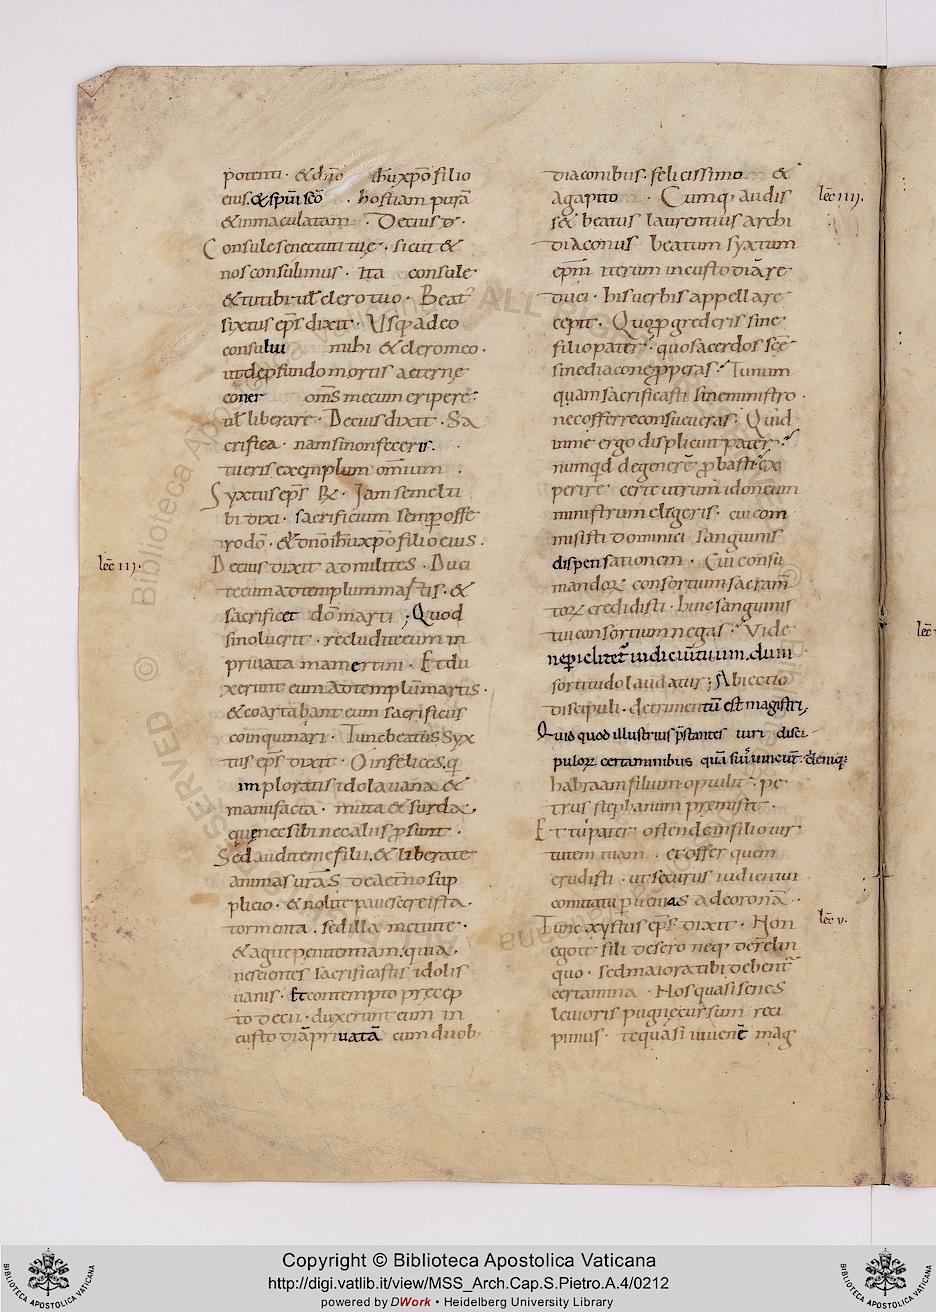 potenti · & dño ihu xpo filio
eius. & spui sco · hostiam purā
& inmaculatam · Decius d ·
Consule senectuti tuę · sicut &
nos consulimus · Ita consule
& tu tibi ul clero tuo · Beat
sixtus eps dixit · Usq adeo
consului mihi & clero meo ·
ut de pfundo mortis aeterne
oms mecum eripere
ul liberare · Decius dixit · Sa
crifica · nam si non feceris ·
tu eris exemplum omium ·
Syxtus eps R · Iam semel ti
bi dixi · sacrificium semp offe
ro dō · & dno ihu xpo filio eius ·
lec iii ·
Decius dixit ad milites · Duci
te eum ad templum martis · &
sacrificet dō marti ; Quod
si noluerit · recludite eum in
priuata mamertini · Et du
xerunt eum ad templū martis ·
& coartabant eum sacrificiis
coinquinari · Tunc beatus Syx
tus eps dixit · O infelices, q
im ploratis idola uana &
manufacta · muta & surda,
quę nec sibi nec aliis p sunt ·
Sed audite me filii, & liberate
animas uras de aetno sup
plicio · & nolite pauescere ista
tormenta · sed illa metuite ·
& agite penitentiam, quia
nescientes sacrificastis idolis
uanis · Et contempto precep
to decii · duxerunt eum in
custodiā priuatā cum duob
diaconibus · felicissimo &
agapito · Cumq audis
lec iiii ·
s& beatus laurentius archi
diaconus beatum syxtum
epm iterum in custodiā re
duci · his uerbis appellare
cepit · Quo pgrederis sine
filio pater · quo sacerdos sce
sine diacone pperas · Tu num
quam sacrificasti sine ministro ·
nec offerre consueueras · Quid
in me ergo displicuit pater ·
numqd degenerē pbasti · Ex
perire certe utrum idoneum
ministrum elegeris · cui com
misisti dominici sanguinis
dispensationem · Cui consu
mandoꝝ consortium sacram
toꝝ credidisti · huic sanguinis
tui consortium negas · Vide
ne piclitet iudiciū tuum, dum
fortitudo laudatur ; Abiectio
discipuli · detrimentū est magistri,
Quid quod illustrius pstantes uiri disci-
puloꝝ certaminibus quā suis uincunt · deniq
habraam filium optulit · pe
trus stephanum premisit ·
Et tu pater ostende in filio uir
tutem tuam · et offer quem
erudisti · ut securus iudicii tui
comitatu puenias ad coronā ·
lec v ·
Tunc xystus eps dixit · Non
ego te fili desero neq derelin
quo · sed maiora tibi debent
certamina · Nos quasi senes
leuioris pugnę cursum reci
pimus · te quasi iuuenē mag
lec
Copyright © Biblioteca Apostolica Vaticana
http://digi.vatlib.it/view/MSS_Arch.Cap.S.Pietro.A.4/0212
powered by DWork • Heidelberg University Library